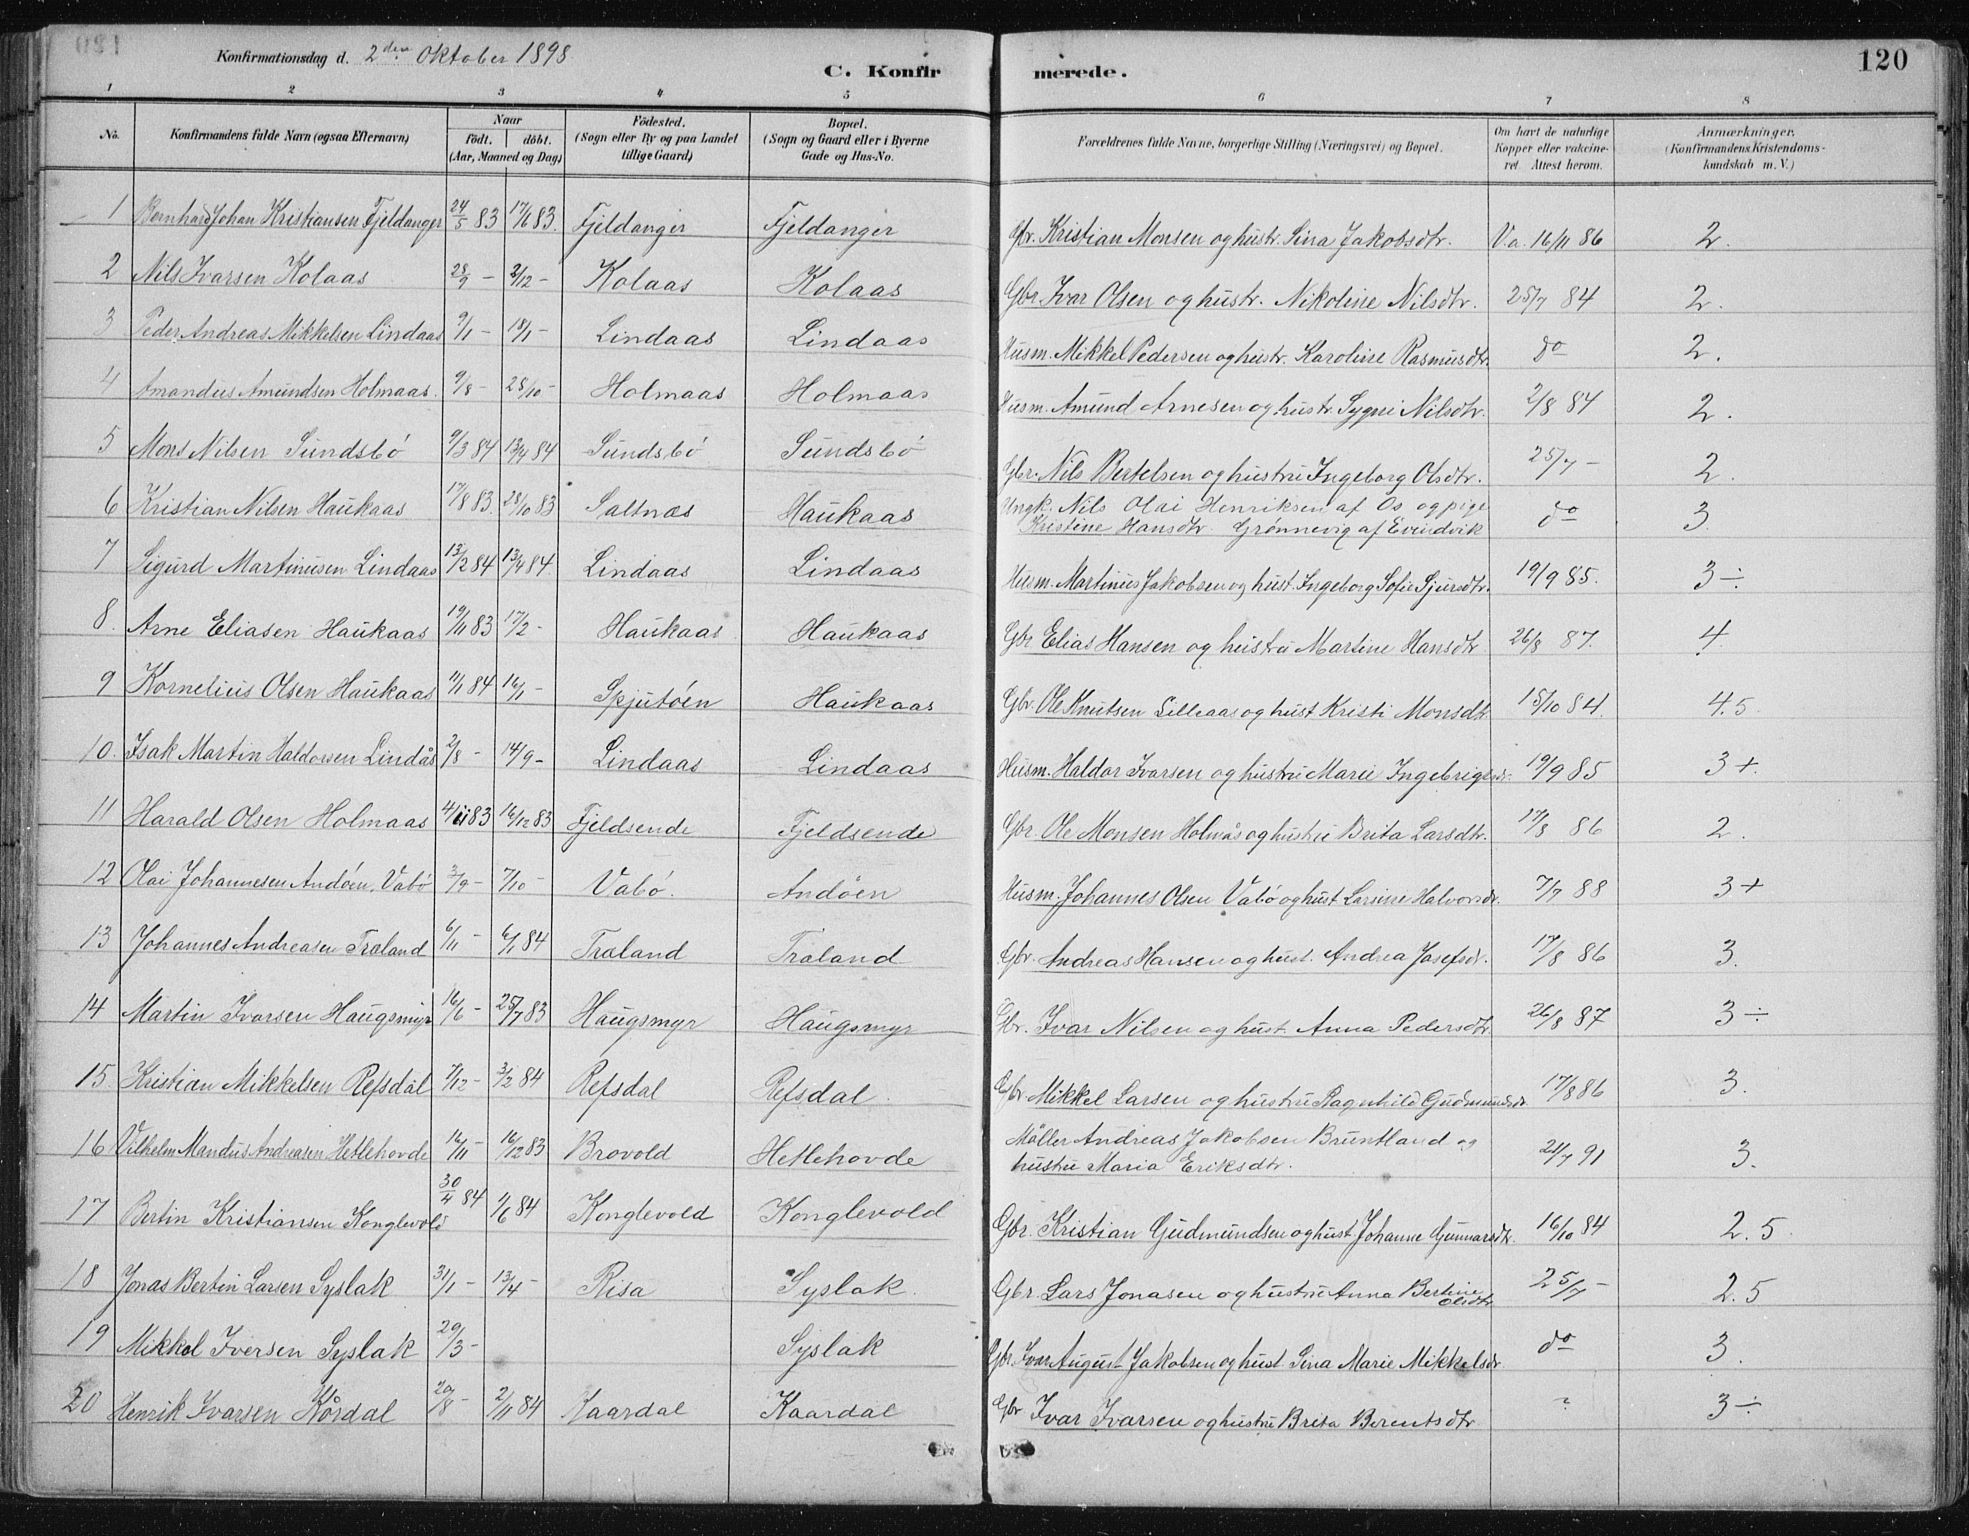 120
Konfirmationsdag d. 2den Oktober 1898
C. Konfirmerede.
1 2 3 4 5 6 7 8
No. Konfirmandens fulde Navn (ogsaa Efternavn) Naar født. døbt. (Aar, Maaned og Dag) Fødested. (Sogn eller By og paa Landet tillige Gaard) Bopæl. (Sogn og Gaard eller i Byerne Gade og Hus-No. Forældrenes fulde Navne, borgerlige Stilling (Næringsvei) og Bopæl. Om havt de naturlige Kopper eller vakcineret. Attest herom. Anmærkninger. (Konfirmandens Kristendomskundskab m. V.)
1 Bernhard Johan Kristiansen Fjeldanger 24/5 83 17/6 83. Fjeldanger Fjeldanger Gbr. Kristian Monsen og hustr. Sina Jakobsdtr. Va. 16/11 86 2.
2 Nils Ivarsen Kolaas 28/9 - 2/12 - Kolaas Kolaas Gbr. Ivar Olsen og hustr. Nikoline Nilsdtr. 25/7 84 2.
3 Peder Andreas Mikkelsen Lindaas 9/1 - 18/1 - Lindaas Lindaas Husm. Mikkel Pedersen og hustr. Karoline Rasmusdtr. do 2.
4 Amandus Amundsen Holmaas. 9/8 - 28/10 - Holmaas Holmaas Husm. Amund Arnesen og hustr. Sygni Nilsdtr. 2/8 84 2.
5 Mons Nilsen Sundsbó 9/3 84 13/4 84 Sundsbó Sundsbó Gbr. Nils Bertelsen og hustru Ingeborg Olsdtr. 25/7 - 2.
6 Kristian Nilsen Haukaas 17/8 83. 28/10 83 Saltnæs Haukaas Ungk. Nils Olai Henriksen af Os og pige Kristine Hansdtr. Grønnevig af Evindvik do 3
7 Sigurd Martinusen Lindaas 13/2 84 13/4 84. Lindaas Lindaas Husm. Martinus Jakobsen og hust. Ingeborg Sofie Sjursdtr. 19/9 85. 3 ÷
8. Arne Eliasen Haukaas 19/11 83 17/2 - Haukaas Haukaas Gbr Elias Hansen og hustru Martine Hansdtr 26/8 87. 4
9 Kornelius Olsen Haukaas 11/1 84 16/1 - Spjutóen Haukaas Gbr. Ole Knutsen Lilleaas og hust Kristi Monsdtr 15/10 84. 4.5
10. Isak Martin Haldorsen Lindås 2/8 - 14/9 - Lindaas Lindaas Husm. Haldor Ivarsen og hustru Marie Ingebrigtsdtr. 19/9 85 3 +.
11 Harald Olsen Holmaas 4/11 83 16/12 83 Fjeldsende Fjeldsende Gbr. Ole Monsen Holmås og hustru Brita Larsdtr. 17/8 86 2.
12 Olai Johannesen Andóen, Vabó 3/9 - 7/10 - Vabó. Andóen Husm. Johannes Olsen Vabó og hust Larsine Halvorsdr. 7/7 88 3 +
13 Johannes Andreasen Træland 6/11 - 6/1 84 Træland Træland Gbr. Andreas Hansen og hust. Andrea Josefsdr. 17/8 86 3.
14 Martin Ivarsen Haugsmyr 16/6 - 25/7 83 Haugsmyr Haugsmyr Gbr. Ivar Nilsen og hust Anna Pedersdtr. 26/8 87 3 ÷
15. Kristian Mikkelsen Refsdal 7/12 - 3/2 84 Refsdal Refsdal. Gbr. Mikkel Larsen og hustru Ragnhild Gudmundsdr 17/8 86 3.
16 Vilhelm Mandus Andreasen Hetlehovde 16/11 - 16/12 83 Brovold Hetlehovde Møller Andreas Jakobsen Bruntland og hustru Maria Eriksdtr. 24/7 91 3.
17 Bertin Kristiansen Konglevold 30/4 84 1/6 84 Konglevold Konglevold Gbr. Kristian Gudmundsen og hust. Johanne Gunnarsdtr. 16/10 84 2.5
18 Jonas Bertin Larsen Syslak 31/1 - 13/4 - Risa Syslak. Gbr. Lars Jonasen og hustru Anna Bertine Olsdtr 25/7 - 2.5
19 Mikkel Iversen Syslak 29/3 - Syslak Gbr. Ivar August Jakobsen og hust Sina Marie Mikkelsdr do 3.
20 Henrik Ivarsen Kårdal 29/8 - 2/11 84 Kaardal Kaardal Gbr Ivar Ivarsen og hustru Brita Berentsdtr ? 3 ÷